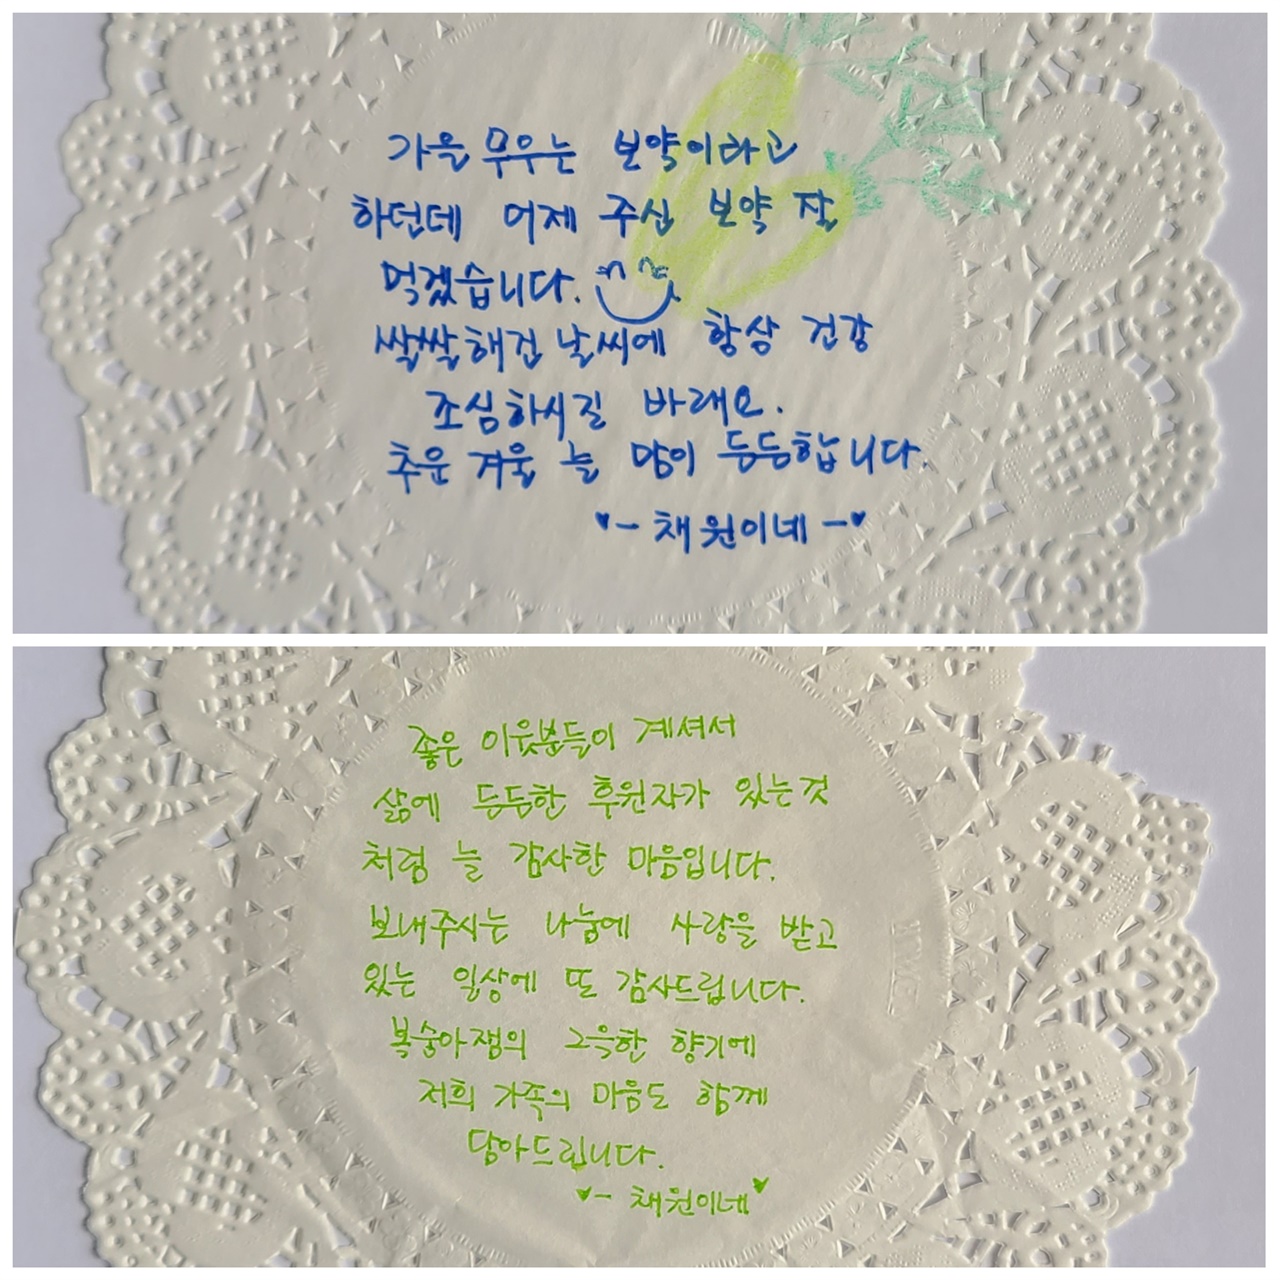 가을 무우는 보약이라고
하던데 어제 주신 보약 잘
먹겠습니다.
쌀쌀해진 날씨에 항상 건강
조심하시길 바래요.
추운 겨울 늘 맘이 든든합니다.
♥- 채원이네 -♥
좋은 이웃분들이 계셔서
삶에 든든한 후원자가 있는것
처럼 늘 감사한 마음입니다.
보내주시는 나눔에 사랑을 받고
있는 일상에 또 감사드립니다.
복숭아잼의 그윽한 향기에
저희 가족의 마음도 함께
담아드립니다.
♥- 채원이네 ♥